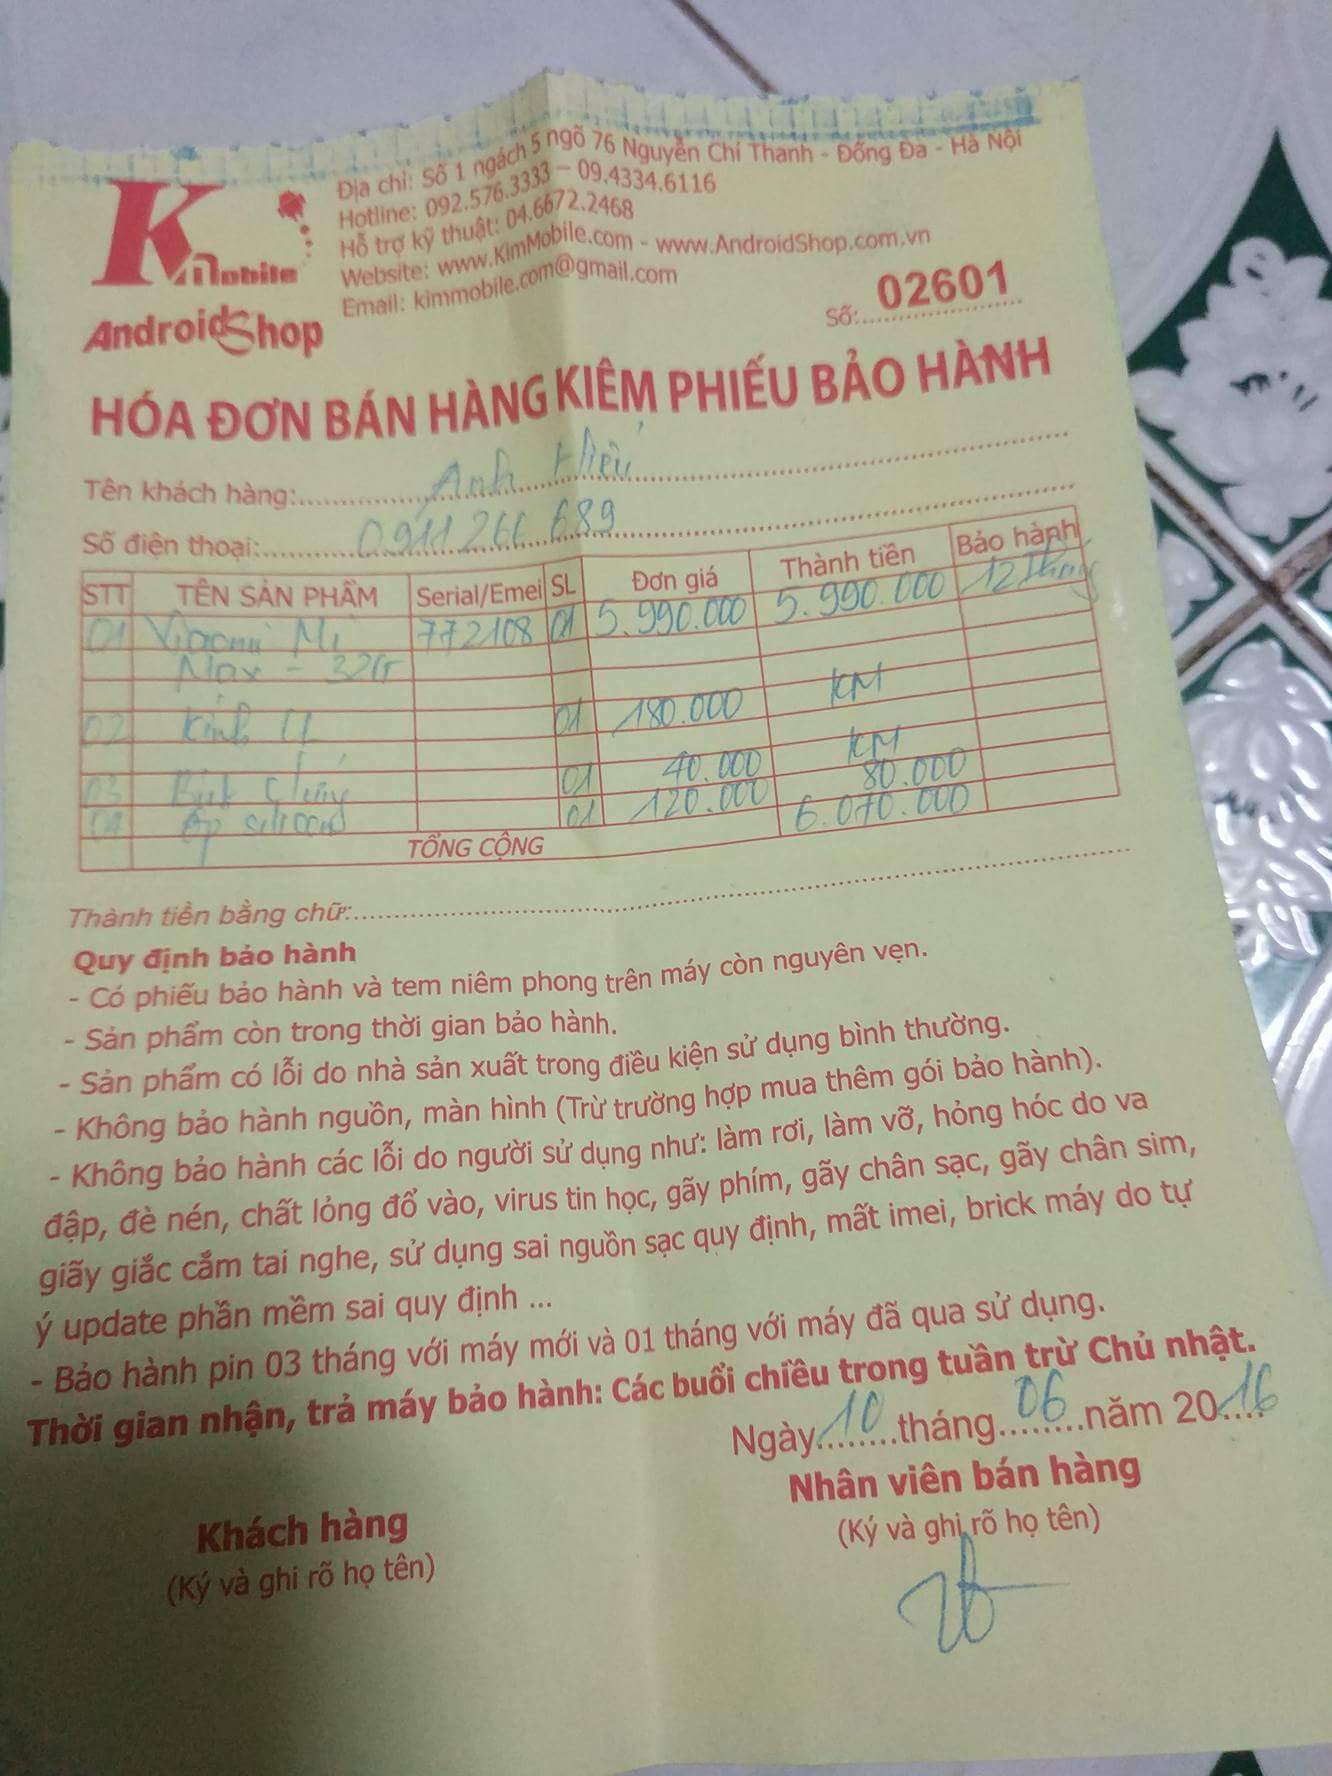 Kimobile
AndroidShop
Địa chỉ: Số 1 ngách 5 ngõ 76 Nguyễn Chí Thanh - Đống Đa - Hà Nội
Hotline: 092.576.3333 - 09.4334.6116
Hỗ trợ kỹ thuật: 04.6672.2468
Website: www.KimMobile.com - www.AndroidShop.com.vn
Email: kimmobile.com@gmail.com
Số: 02601
HÓA ĐƠN BÁN HÀNG KIÊM PHIẾU BẢO HÀNH
Tên khách hàng: Anh Hiếu
Số điện thoại: 0911 266 689
STT TÊN SẢN PHẨM Serial/Emei SL Đơn giá Thành tiền Bảo hành
01 Xiaomi Mi 772108 01 5.990.000 5.990.000 12 Tháng
Max - 32G
02 Kính CL 01 180.000 KM
03 Bút 01 40.000 KM
04 Ốp silicon 01 120.000 80.000
TỔNG CỘNG 6.070.000
Thành tiền bằng chữ:
Quy định bảo hành
- Có phiếu bảo hành và tem niêm phong trên máy còn nguyên vẹn.
- Sản phẩm còn trong thời gian bảo hành.
- Sản phẩm có lỗi do nhà sản xuất trong điều kiện sử dụng bình thường.
- Không bảo hành nguồn, màn hình (Trừ trường hợp mua thêm gói bảo hành).
- Không bảo hành các lỗi do người sử dụng như: làm rơi, làm vỡ, hỏng hóc do va
đập, đè nén, chất lỏng đổ vào, virus tin học, gãy phím, gãy chân sạc, gãy chân sim,
giãy giắc cắm tai nghe, sử dụng sai nguồn sạc quy định, mất imei, brick máy do tự
ý update phần mềm sai quy định ...
- Bảo hành pin 03 tháng với máy mới và 01 tháng với máy đã qua sử dụng.
Thời gian nhận, trả máy bảo hành: Các buổi chiều trong tuần trừ Chủ nhật.
Ngày 10 tháng 06 năm 2016
Khách hàng Nhân viên bán hàng
(Ký và ghi rõ họ tên) (Ký và ghi rõ họ tên)